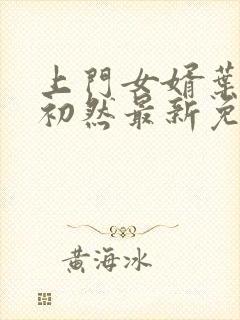 上門女婿葉
初然最新免
黃海冰